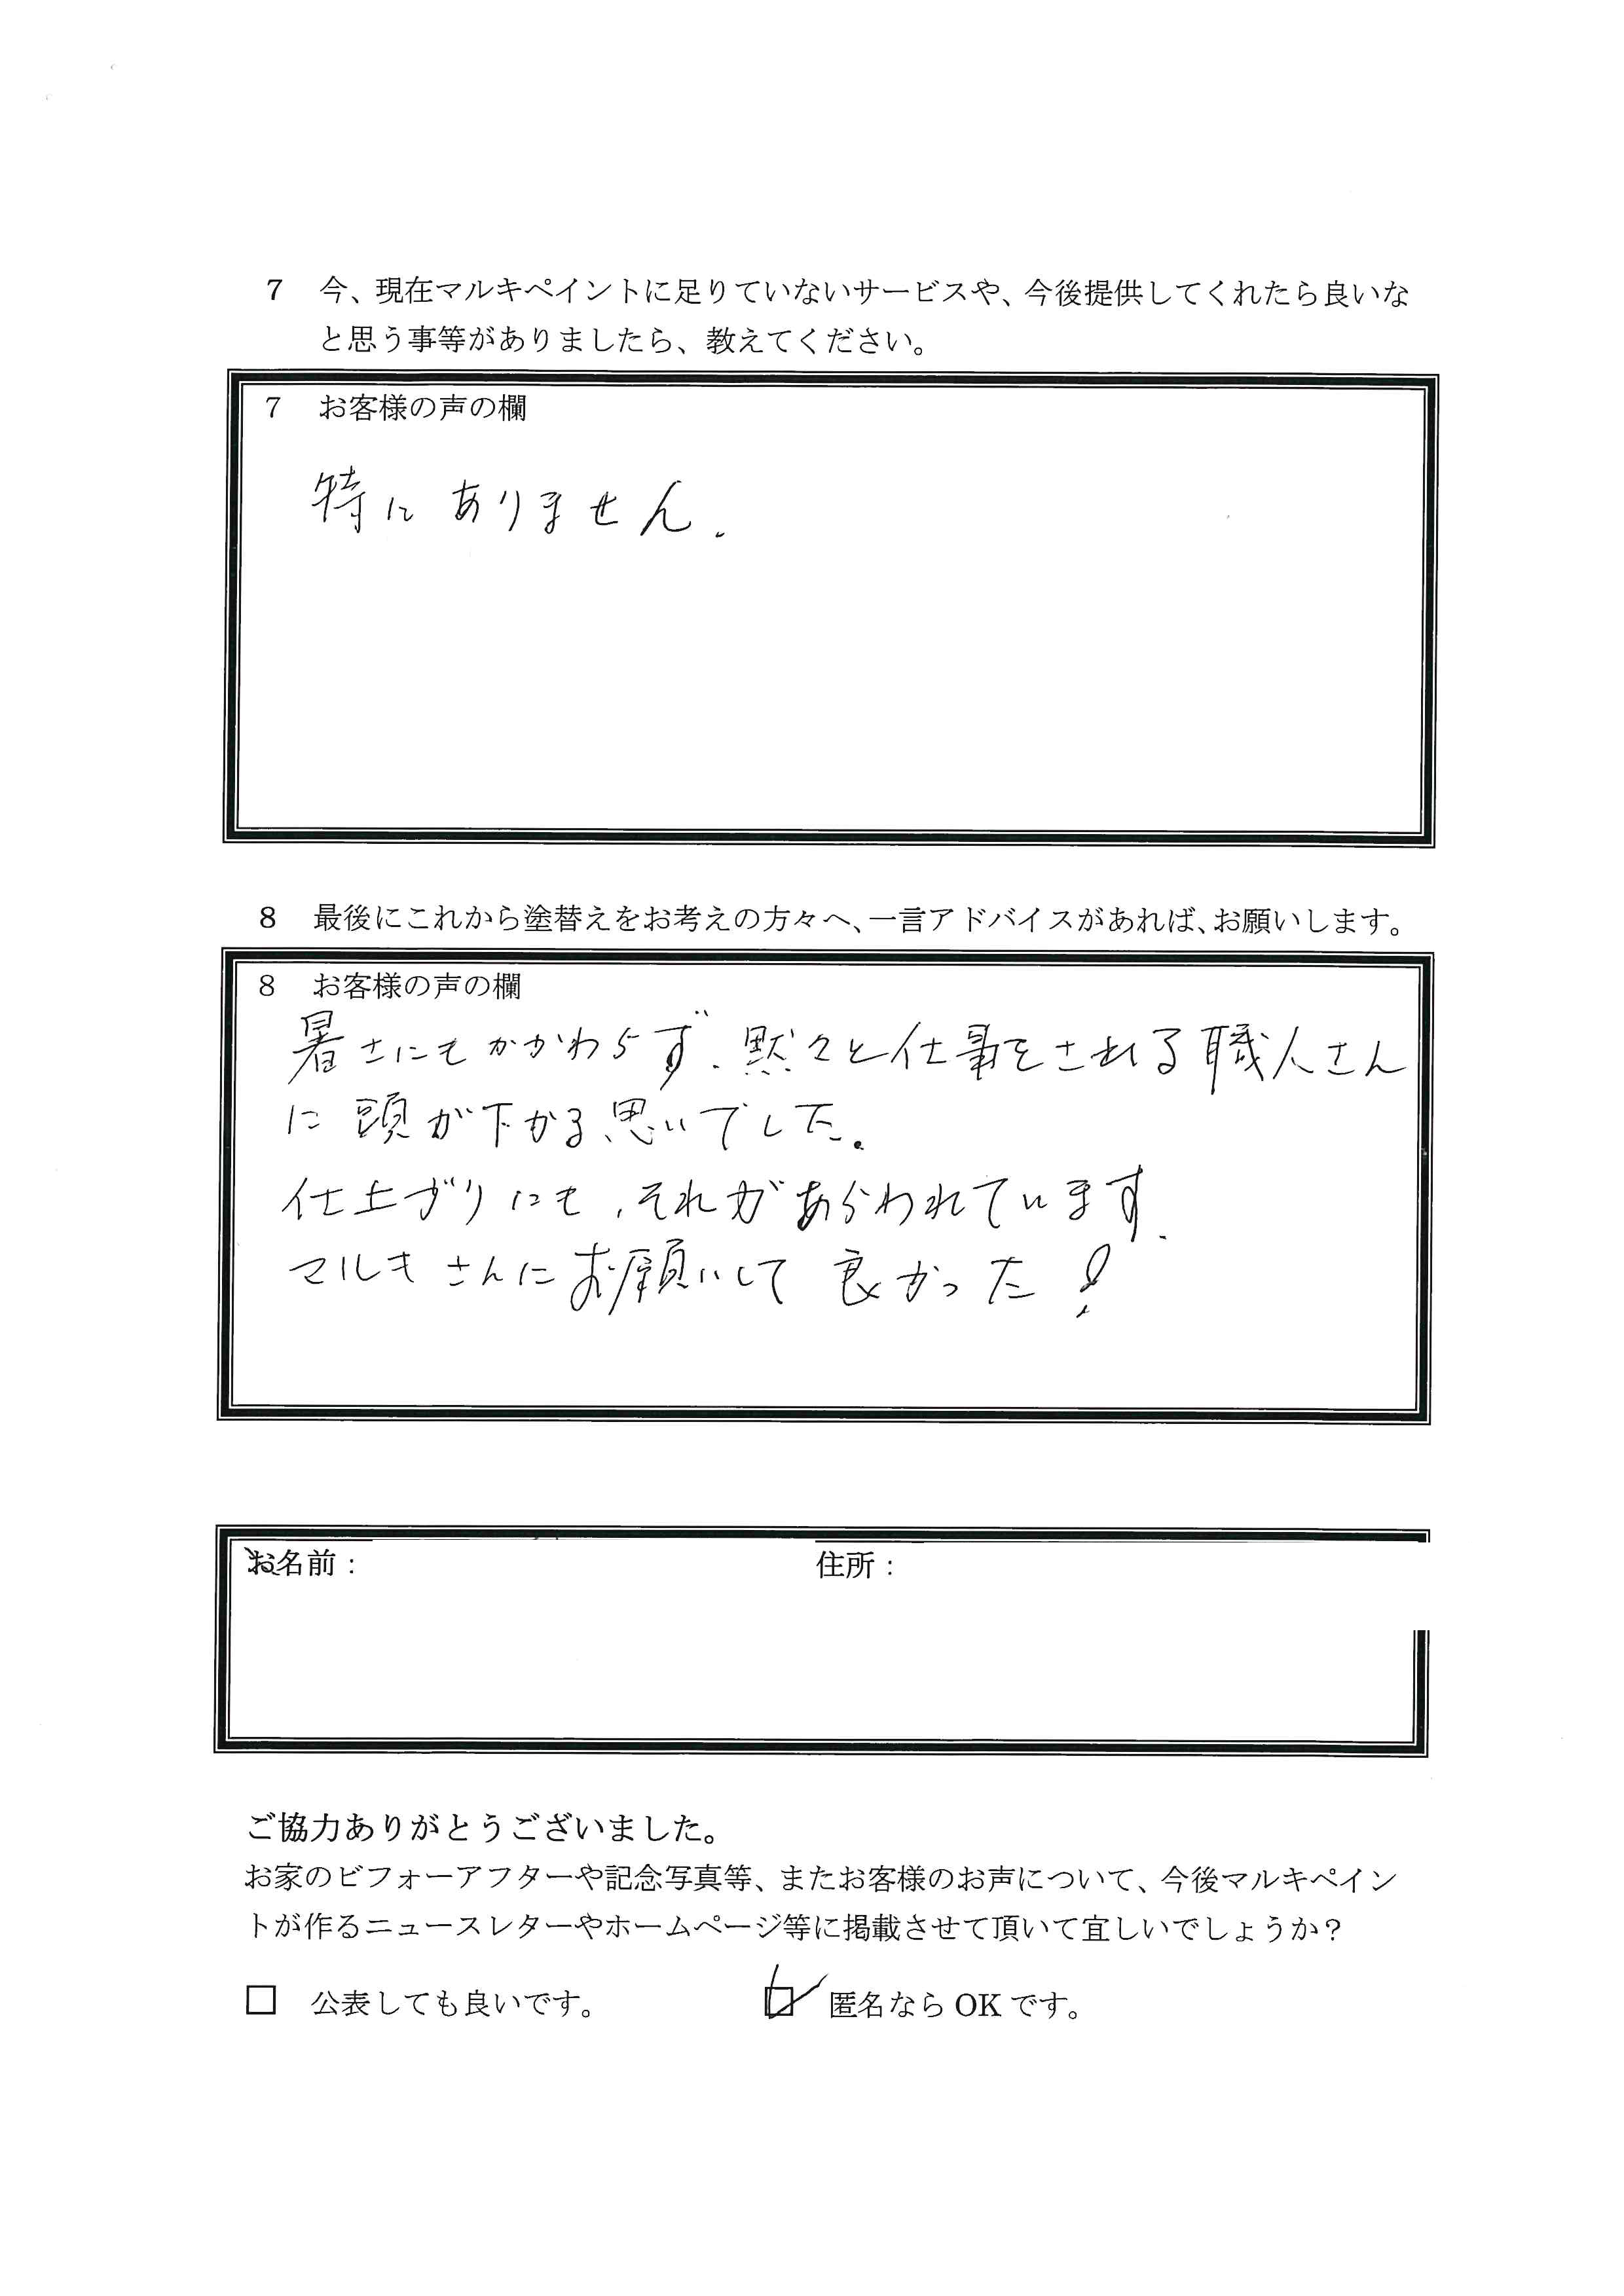 7　今、現在マルキペイントに足りていないサービスや、今後提供してくれたら良いな
と思う事等がありましたら、教えてください。
7　お客様の声の欄
特に ありません.
8　最後にこれから塗替えをお考えの方々へ、一言アドバイスがあれば、お願いします。
8　お客様の声の欄
暑さにもかかわらず、黙々と仕事をされる職人さん
に 頭が下がる思いでした。
仕上がりにも、それがあらわれています.
マルキさんにお願いして 良かった!
お名前：　住所：
ご協力ありがとうございました。
お家のビフォーアフターや記念写真等、またお客様のお声について、今後マルキペイン
トが作るニュースレターやホームページ等に掲載させて頂いて宜しいでしょうか？
□　公表しても良いです。　☑　匿名なら OK です。